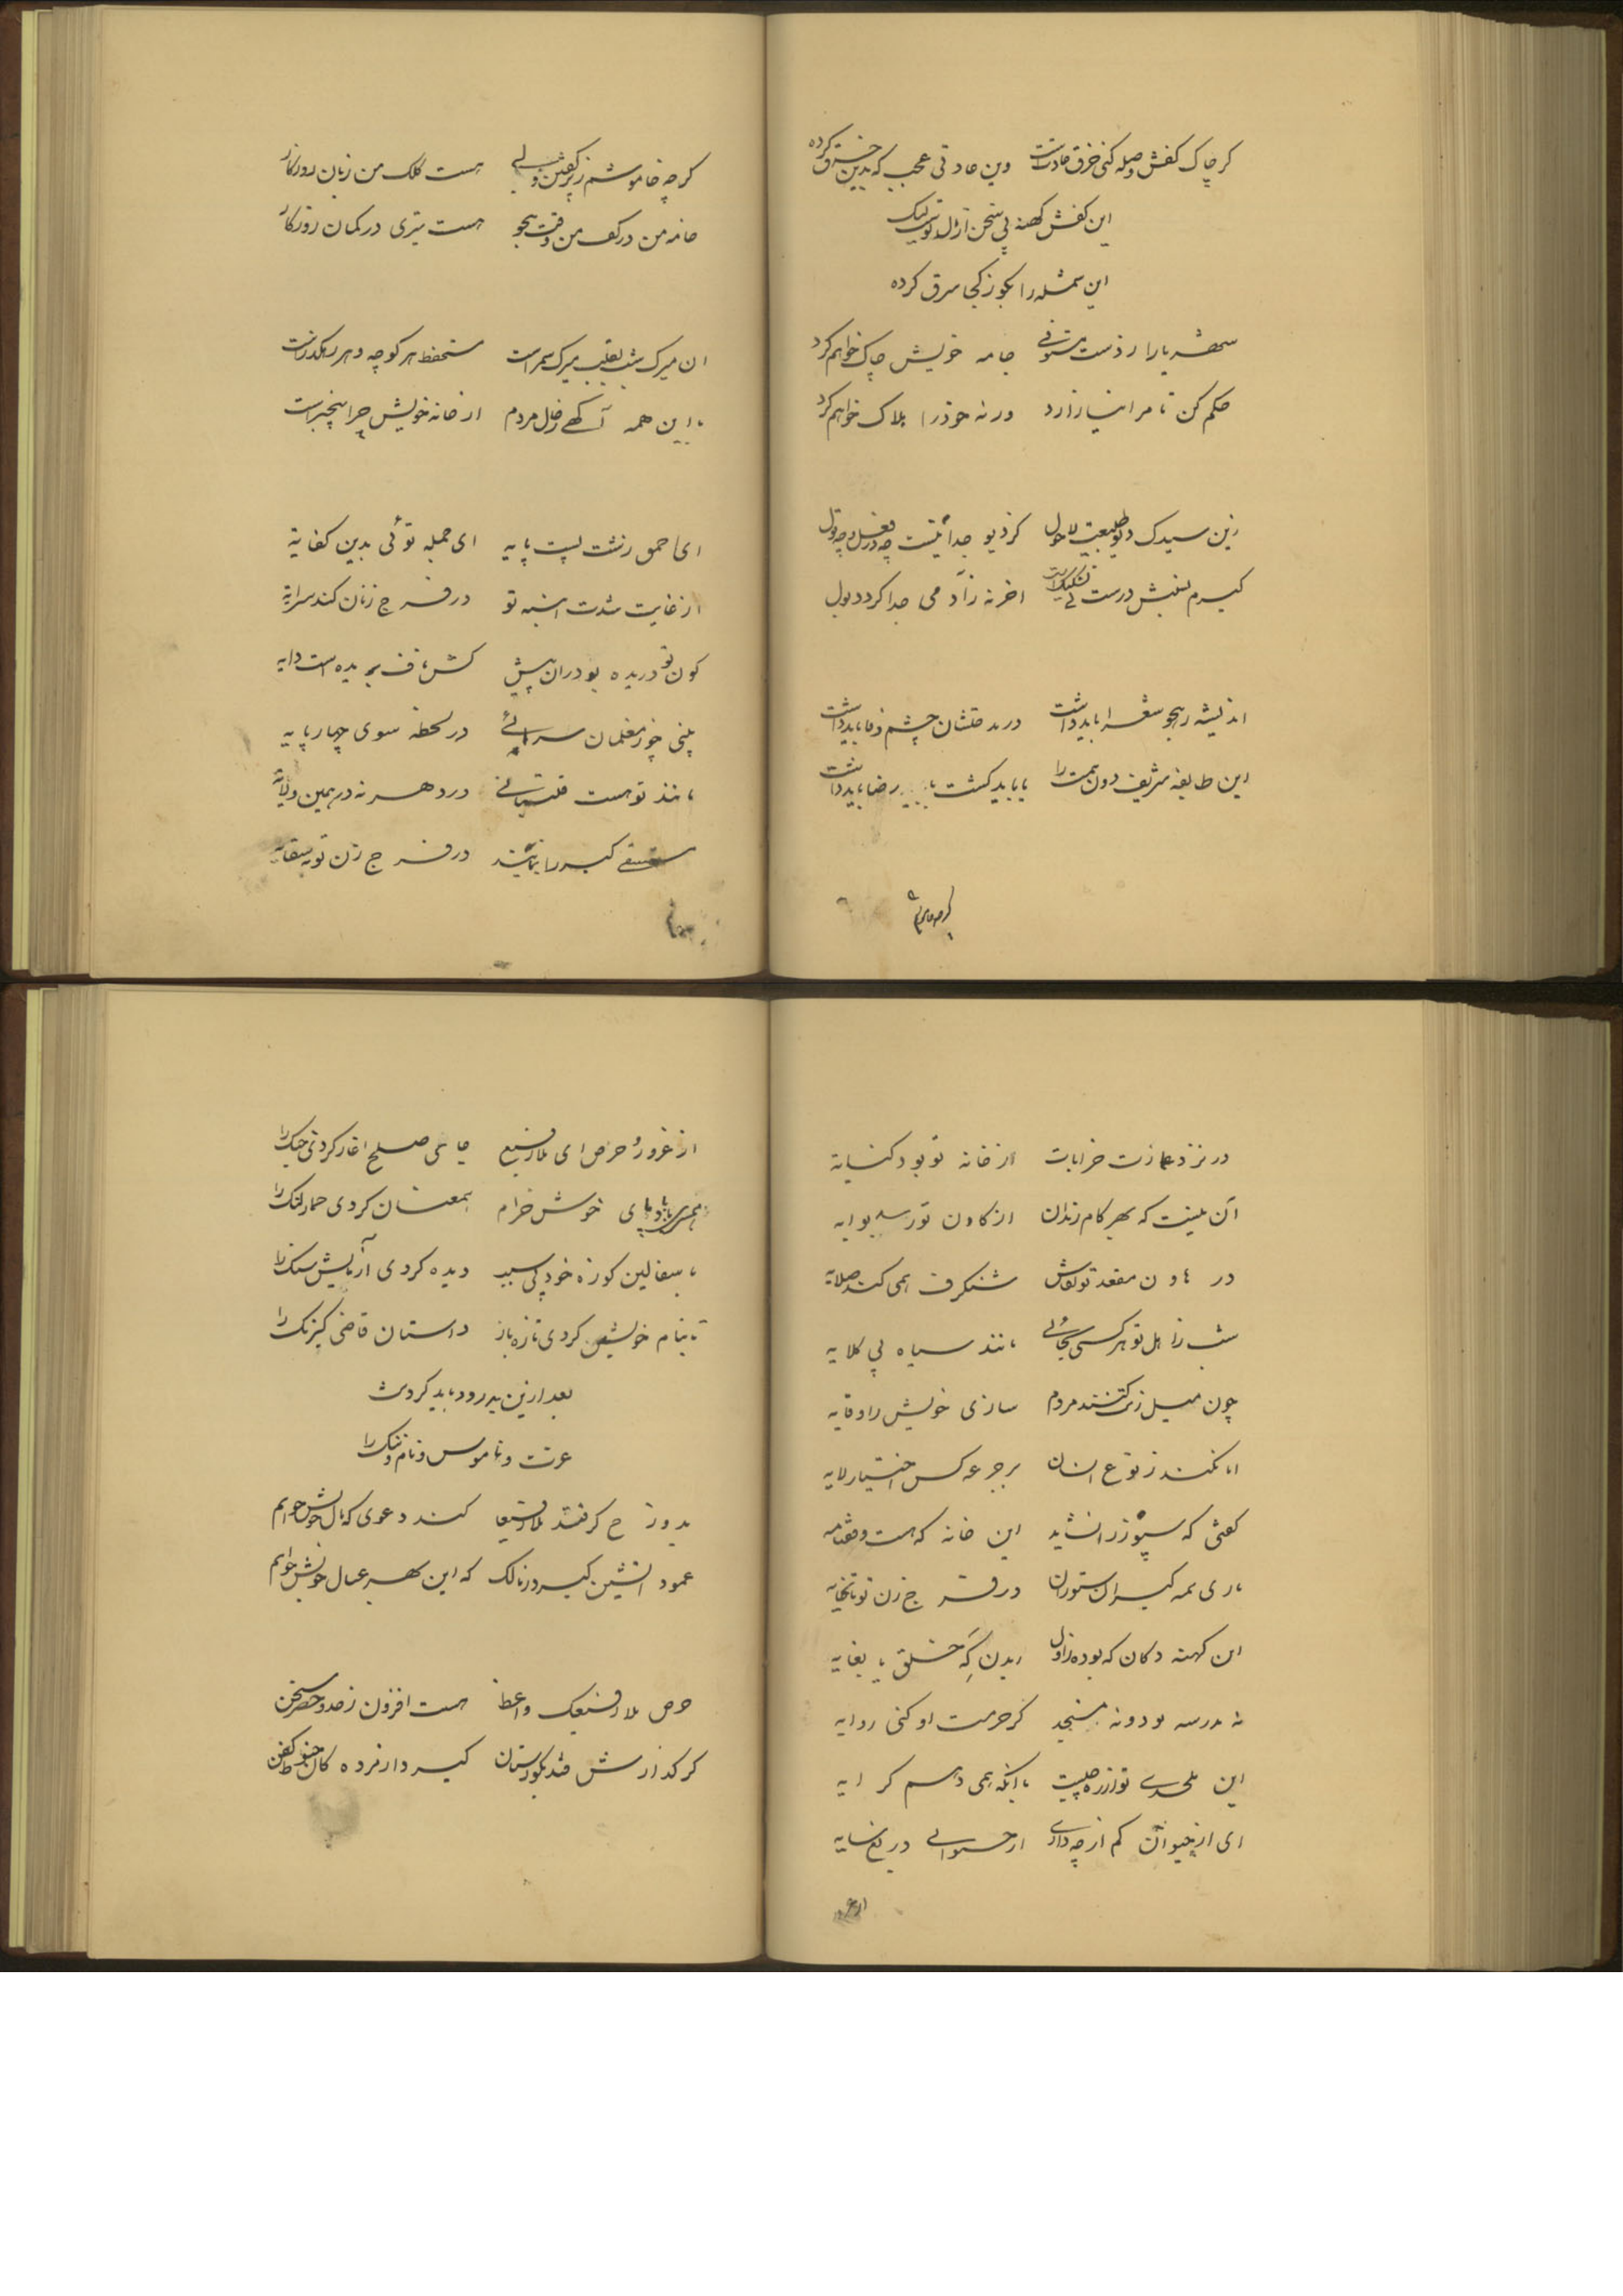 کر چاک کفش وصله کنی خرق عادتست وین عادتی عجب که بدین خرق کرده
این کفش کهنه پی سخن از مال تو نیک
این شمله را بکو ز کجا سرق کرده
شهریارا ز دست مستوفی جامه خویش چاک خواهم کرد
حکم کن تا مرا نیازارد ورنه خود را هلاک خواهم کرد
زین سیدک دیو طبیعت لاحول کز دیو جدا نیست چه در فعل و چه قول
کیرم نسبش درست اخر نه ز آدمی جدا کردد بول
اندیشه ز هجو شعرا باید داشت در مدحتشان چشم وفا باید داشت
این طایفه شریف دون همت را یا باید کشت یا رضا باید داشت
کرچه خاموشم
کرچه خاموشم ز هست کلک من زبان روزکار
خامه من در کف من وقت هجو هست تیری در کمان روزکار
ان میرک شب نقیب میرک سمر است مستحفظ هر کوچه و هر رهکذر است
با این همه آکهی ز حال مردم از خانه خویش چرا بیخبر است
ای احمق زشت پست پایه ای جمله توئی بدین کفایه
از غایت شدت اشبه تو در فرج زنان کند سرایه
کون تو دریده بود زان پیش کش ناف بریده است دایه
بینی چو ز مغلمان سرائی در لحظه شوی چهار پایه
مانند تو هست قلتبانی در دهر نه در همین ولایه
کیر را نباشد در فرج زن تو به سقایه
در نزد
در نزد خرابات از خانه تو بود کنایه
آن نیست که بهر کام رندان از کاون تو رسد بوایه
در هاون مقعد تو شنکرف همی کند صلایه
شب ز اهل تو هر کسی بجائی مانند سیاه پی کلایه
چون میل ز کنند مردم سازی خویش را وقایه
انا نکنند ز نوع انسان بر جرعه کس اختیار لایه
کفتی که سپوز را نشاید این خانه که هست وقفنامه
باری همه کیر ستوران در فرج زن تو
این کهنه دکان که بوده ز اول ریدن که خلق با بغایه
نه مدرسه بود و نه مسجد کز حرمت او کنی روایه
این ملحدی تو از ره چیست با آنکه همی دهیم کرایه
ای از حیوان کم از چه داری از دریغ سایه
از غرور
از غرور و حرص ای ملا رفیع جای صلح اغاز کردی جنک را
همسر باد پای خوش خرام همعنان کردی حمار لنک را
با سفالین کوزه خود بی سبب دیده کردی آزمایش سنک را
تا بنام خویش کردی تازه باز داستان قاضی کیرنک را
بعد ازین پدرود باید کردنت
عزت و ناموس و نام و ننک را
بدوزخ کر فتد ملا رفیعا کند دعوی که مال خویش خواهم
عمود اتشین کیرد ز مالک که این بهر عیال خویش خواهم
حرص ملا رفیعک واعظ هست افزون ز حد و حصر سخن
کر کذارش فتد بکورستان کیرد از مرده کان حنوط و کفن